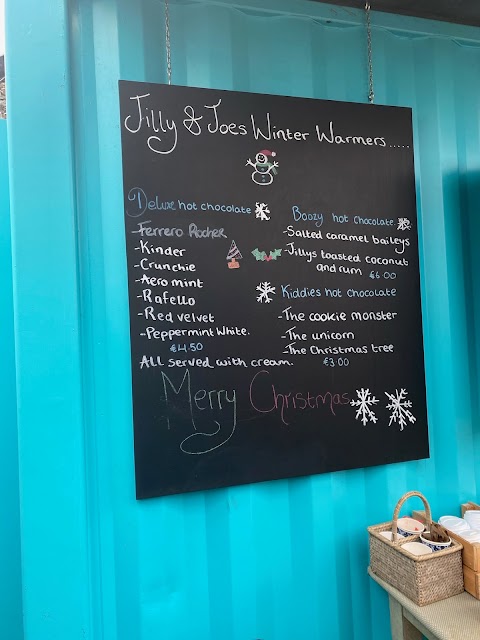 Jilly & Joes Winter Warmers.....
Deluxe hot chocolate
-Ferrero Rocher
-Kinder
-Crunchie
-Aero mint
-Rafello
-Red velvet
-Peppermint White.
€4.50
All served with cream.
Boozy hot chocolate
-Salted caramel baileys
-Jillys toasted coconut
and rum €6.00
Kiddies hot chocolate
-The cookie monster
-The unicorn
-The Christmas tree
€3.00
Merry Christmas